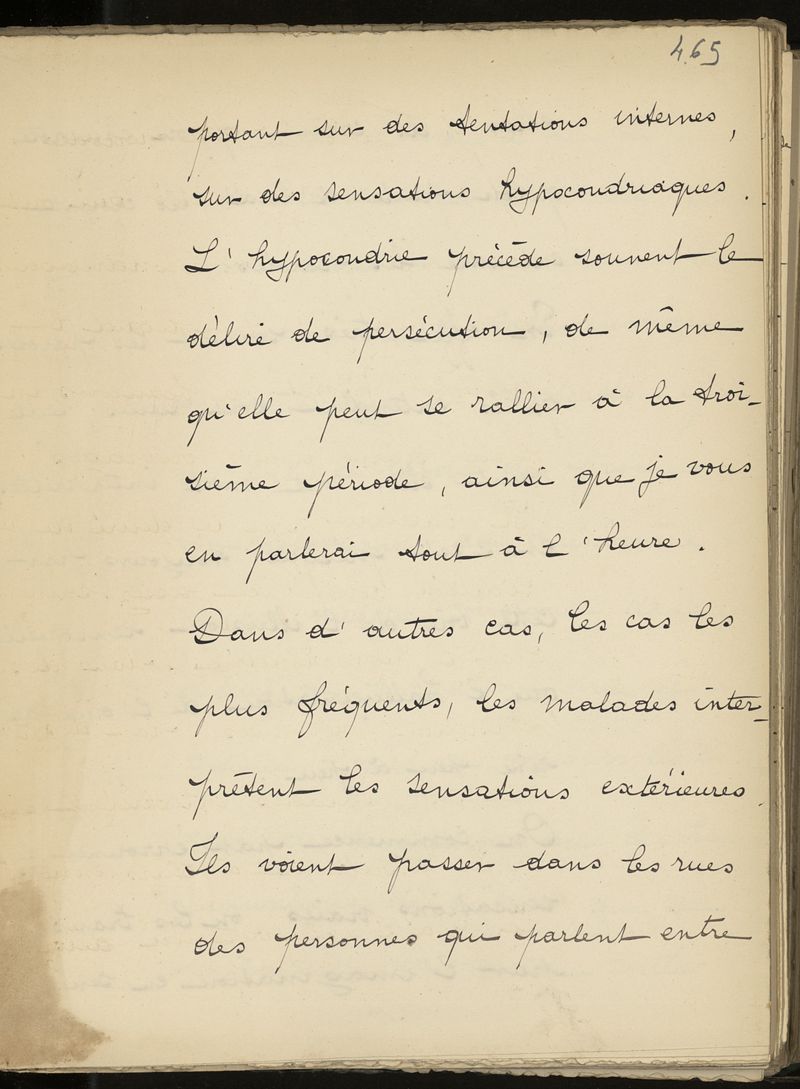 465
portant sur des tentations internes,
sur des sensations hypocondriaques.
L'hypocondrie précède souvent le
délire de persécution, de même
qu'elle peut se rallier à la troi-
sième période, ainsi que je vous
en parlerai tout à l'heure.
Dans d'autres cas, les cas les
plus fréquents, les malades inter-
prètent les sensations extérieures.
Ils voient passer dans les rues
des personnes qui parlent entre